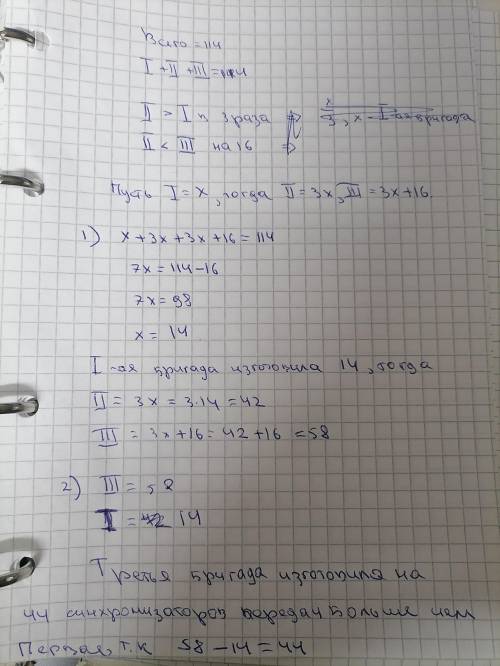 Всего = 114
I + II + III = 114
II > I в 3 раза
II < III на 16
x
3, x - I-ая бригада
Пусть I = x, тогда II = 3x, III = 3x+16.
1) x + 3x + 3x + 16 = 114
7x = 114 - 16
7x = 98
x = 14
I-ая бригада изготовила 14, тогда
II = 3x = 3·14 = 42
III = 3x+16 = 42 + 16 = 58
2) III = 58
I = 14
Третья бригада изготовила на
44 синхронизаторов передач больше чем
Первая, т.к 58 - 14 = 44